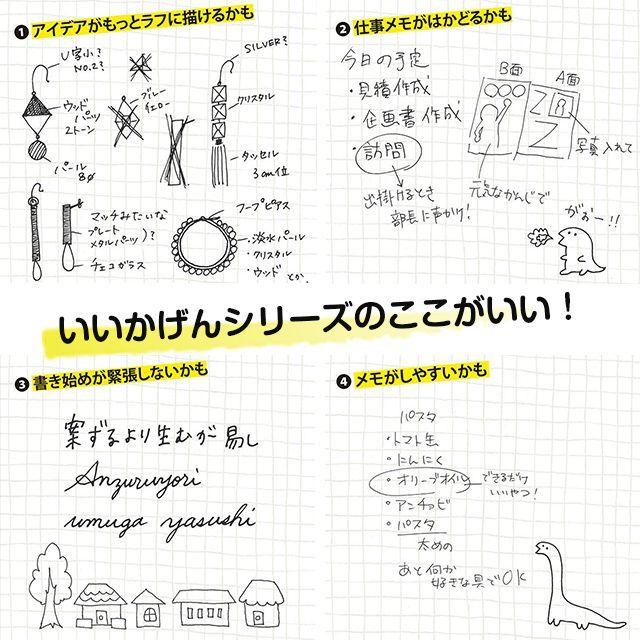 ❶ アイデアがもっとラフに描けるかも
U字小?
NO.2?
ウッド
パーツ
2トーン
パール
8φ
ブルー
イエロー
SILVER?
クリスタル
タッセル
3cm位
マッチみたいな
プレート
メタルパーツ)?
チェコガラス
フープピアス
・淡水パール
・クリスタル
・ウッド とか
❷ 仕事メモがはかどるかも
今日の予定
・見積作成
・企画書作成
・訪問
出掛けるとき
部長に声かけ!
B面
A面
写真入れて
元気なかんじで
がおー!!
いいかげんシリーズのここがいい!
❸ 書き始めが緊張しないかも
案ずるより生むが易し
Anzuruyori
umuga yasushi
❹ メモがしやすいかも
パスタ
・トマト缶
・にんにく
・オリーブオイル
できるだけ
いいやつ!
・アンチョビ
・パスタ
太めの
あと何か
好きな具でOK